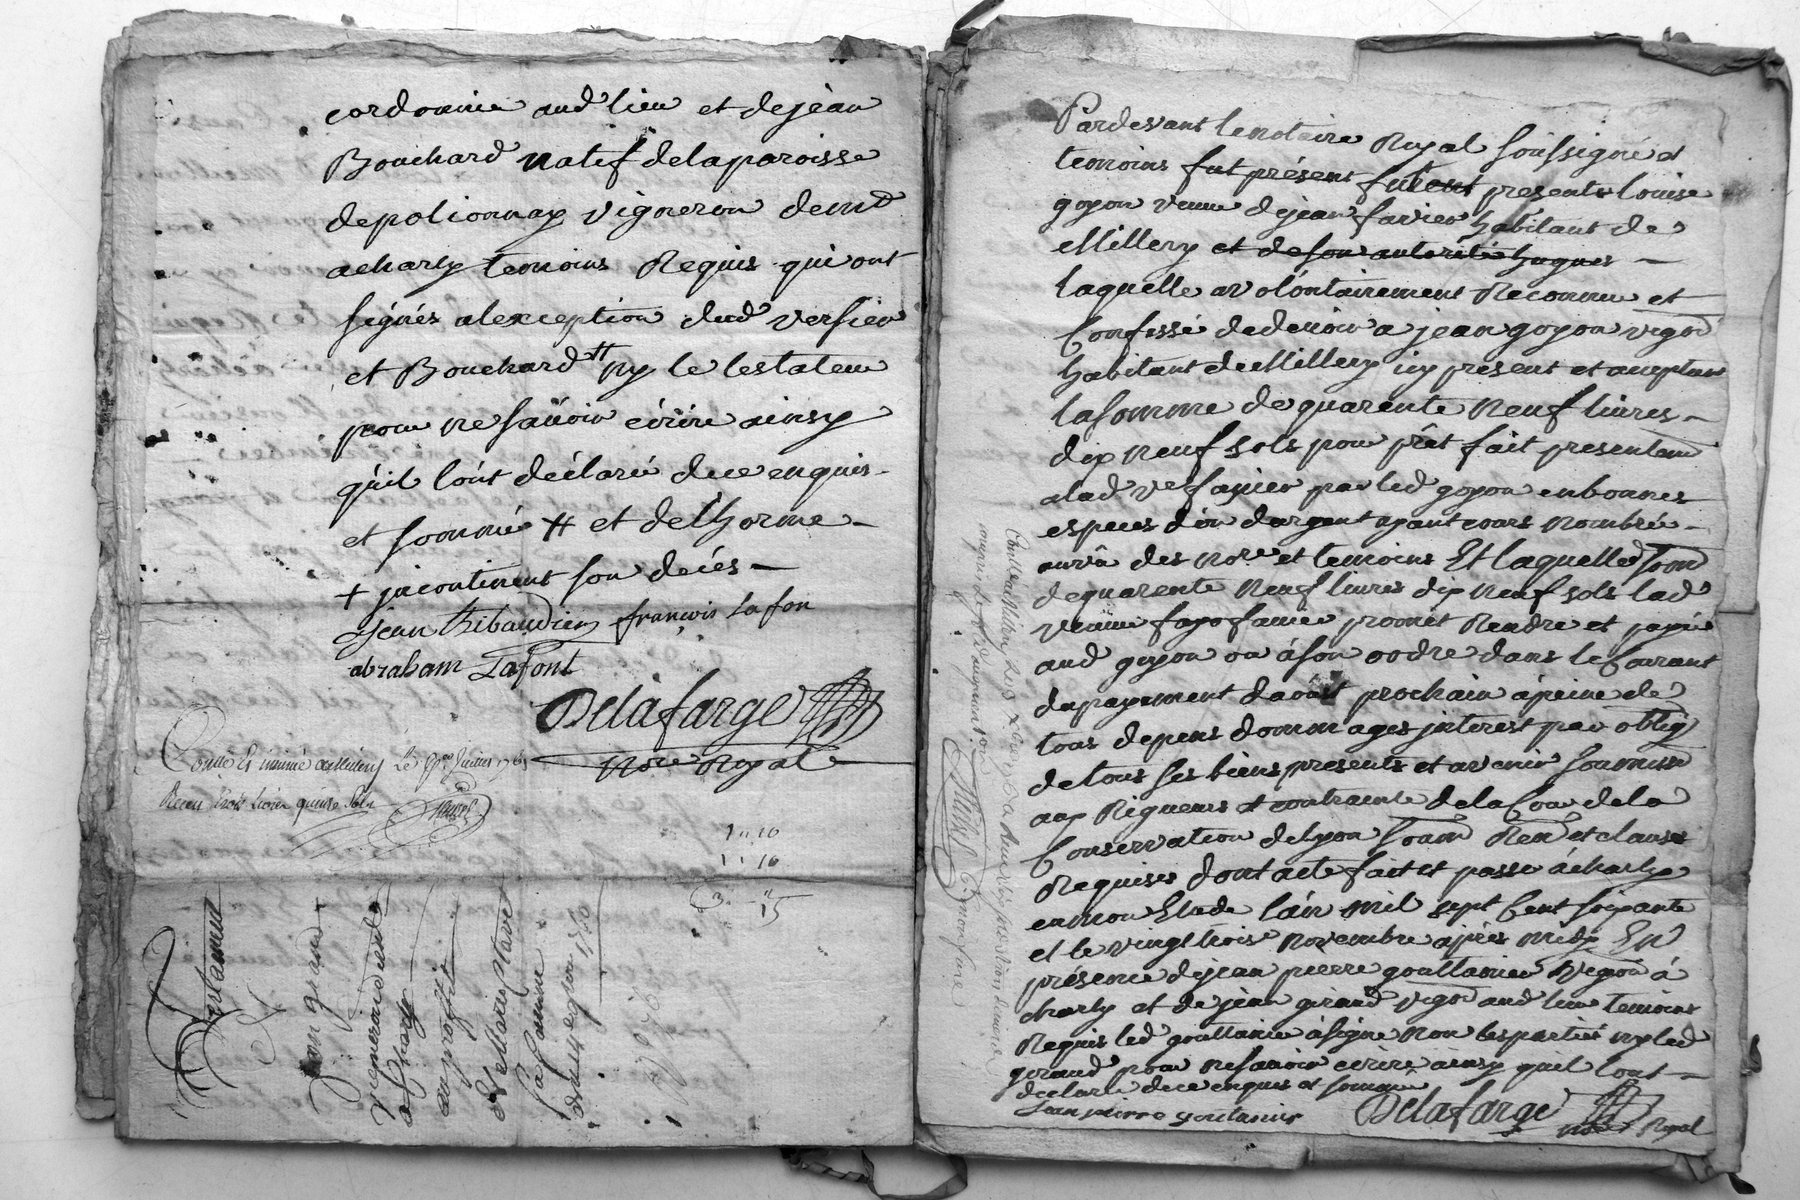 cordonnie aud lieu et de jean
Bouchard natif de la paroisse
de polionnay vigneron dem.t
a charly temoins Requis qui ont
signés alexception dud versier
et Bouchard ny le testateur
pour ne savoir écrire ainsy
quil lont déclaré de ce enquis
et sommé # et de lhorme
+ incontinent son decés
Jean thibaudier françois Lafon
abraham Lafont
Delafarge
No.re Royal
Conllé et insinué a millery Le juillet
Receu trois livres quinze sols
1 " 10
15
Testament
Jean girard
vigneron demt
a Charly
au proffit
de Marie
sa famme
Pardevant le notaire Royal soussigné et
temoins fut présent furent presents louise
goyon veuve de jean favier habitant de
Millery et de son autorité hugues
laquelle a volontairement Reconnu et
Confessé de devoir a jean goyon vigon
habitant de Millery icy present et aceptan
la somme de quarente neuf livres
dix neuf sols pour prêt fait presentem
a lad ve favier par led goyon en bonnes
especes dor dargent ayant cours nombrée
au vû des no.re et temoins Et laquelle som
de quarente neuf livres dix neuf sols lad
veuve favier promet Rendre et payer
aud goyon ou á son ordre dans le Courant
du payement daoust prochain á peine de
tous depens dommages interest par oblig
de tous ses biens presents et avenir soumiss
aux Rigueurs et contrainte de la Cour de la
Conservation de lyon soum Ren et clause
Requises dont acte fait et passé á charly
en mon Etude lán mil sept Cent soixante
et le vingt trois novembre aprés midy En
présence de jean pierre gouttanier vigon á
charly et de jean giraud vigon aud lieu temoins
Requis led gouttanier á signé non les parties ny led
giraud pour ne savoir ecrire ainsy quil lont
declaré de ce enquis et sommé
Jean pierre goutanier Delafarge
no.re Royal